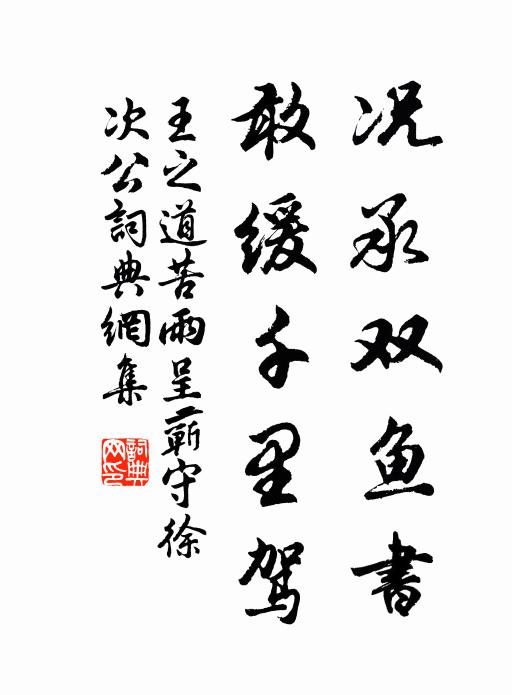 况承双鱼書
敢缓千里驾
王之道苦雨呈蕲守徐
次公詞典網集
詞典网印